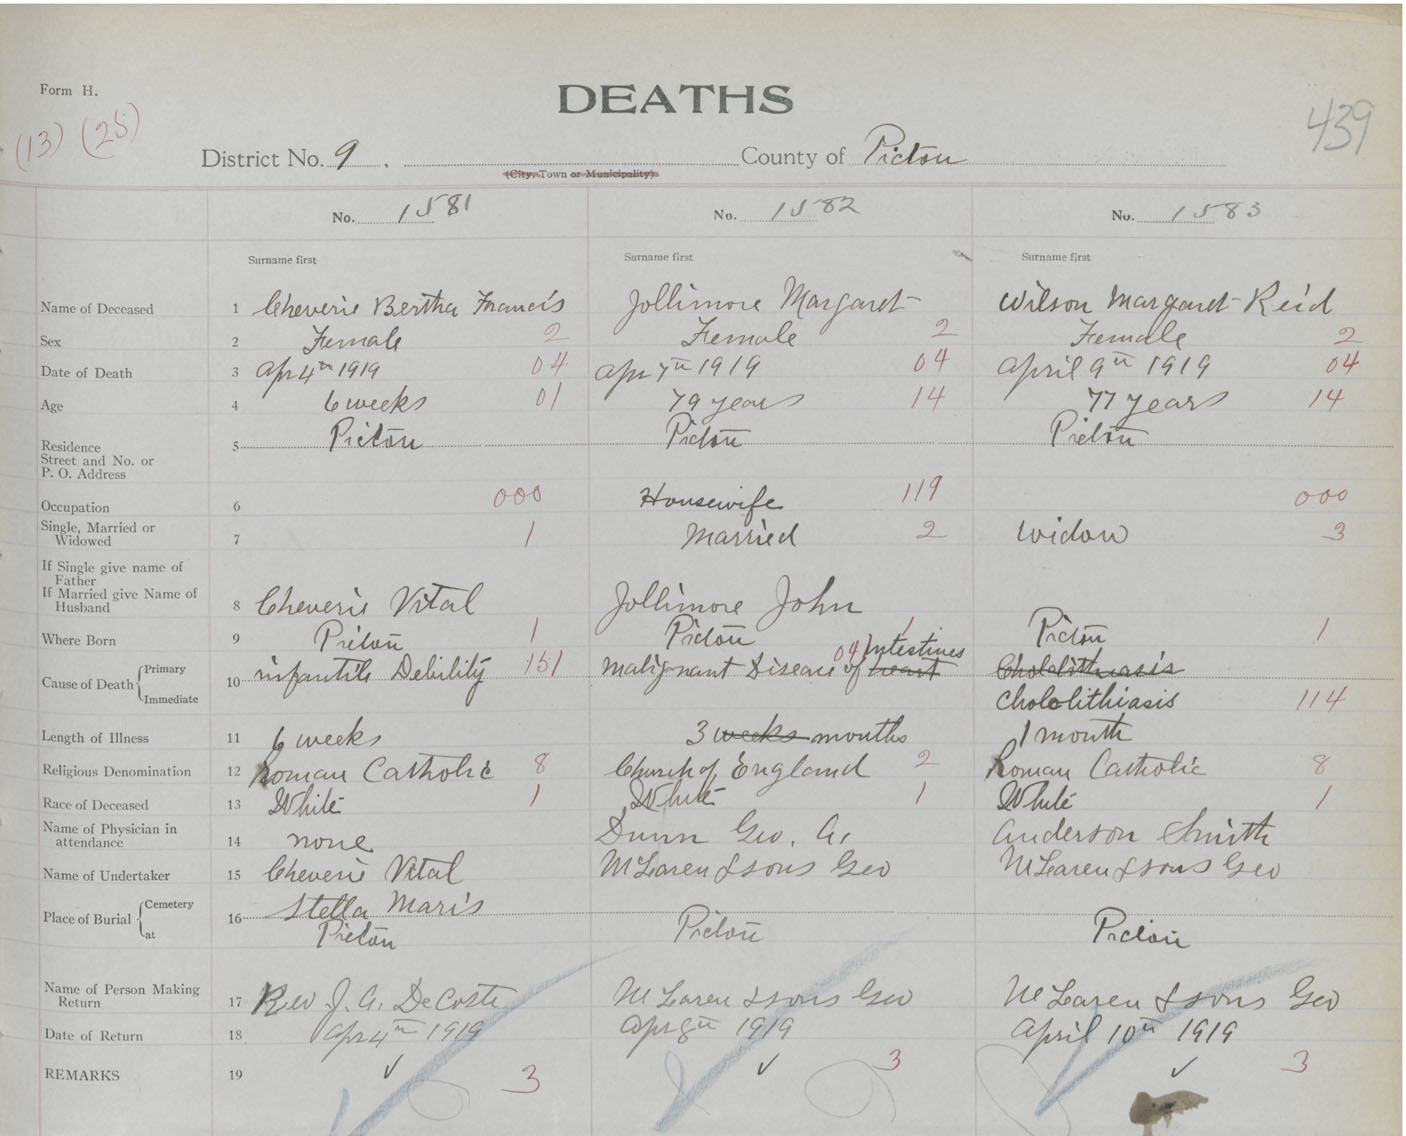 Form H.
DEATHS
439
(13) (25)
District No. 9. County of Pictou
(City, Town or Municipality)
No. 1581 No. 1582 No. 1583
Surname first Surname first Surname first
Name of Deceased 1 Cheverie Bertha Francis Jollimore Margaret Wilson Margaret Reid
Sex 2 Female 2 Female 2 Female 2
Date of Death 3 Apr 4th 1919 04 Apr 7th 1919 04 April 9th 1919 04
Age 4 6 weeks 01 79 years 14 77 years 14
Residence Street and No. or P. O. Address 5 Pictou Pictou Pictou
Occupation 6 000 Housewife 119 000
Single, Married or Widowed 7 1 Married 2 Widow 3
If Single give name of Father If Married give Name of Husband 8 Cheverie Vital Jollimore John
Where Born 9 Pictou 1 Pictou 1 Pictou 1
Cause of Death Primary Immediate 10 infantile Debility 151 malignant Disease of heart Intestines 04 Chololithiasis
chololithiasis 114
Length of Illness 11 6 weeks 3 weeks months 1 month
Religious Denomination 12 Roman Catholic 8 Church of England 2 Roman Catholic 8
Race of Deceased 13 White 1 White 1 White 1
Name of Physician in attendance 14 none Dunn Geo. A. Anderson Smith
Name of Undertaker 15 Cheverie Vital McLaren & sons Geo McLaren & sons Geo
Place of Burial Cemetery at 16 Stella Maris
Pictou Pictou Pictou
Name of Person Making Return 17 Rev J. A. DeCoste McLaren & sons Geo McLaren & sons Geo
Date of Return 18 Apr 4th 1919 Apr 8th 1919 April 10th 1919
REMARKS 19 ✓ 3 ✓ 3 ✓ 3